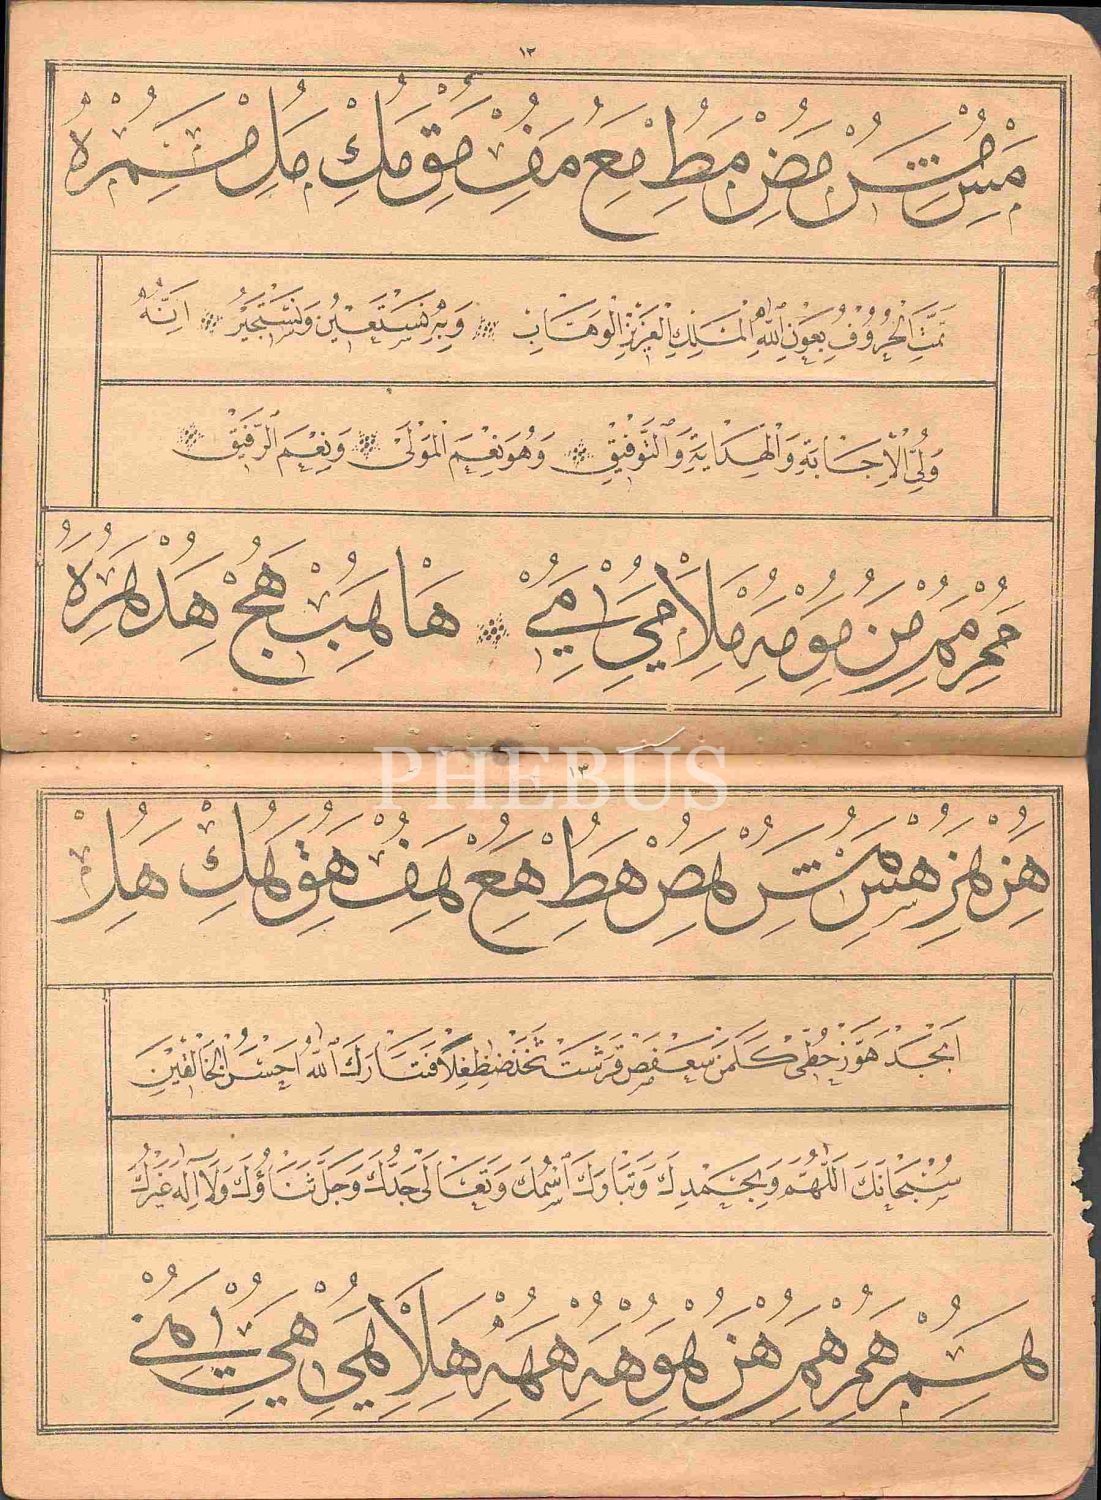 ١٢
مس مش مض مط مع مف مق مك مل
تَمَّتِ الْحُرُوفُ بِعَوْنِ اللّٰهِ الْمَلِكِ الْعَزِيزِ الْوَهَّابِ وَبِهِ نَسْتَعِينُ وَنَسْتَجِيرُ اِنَّهُ
وَلِيُّ الْاِجَابَةِ وَالْهِدَايَةِ وَالتَّوْفِيقِ وَهُوَ نِعْمَ الْمَوْلَى وَنِعْمَ الرَّفِيقُ
مم من مو مه ملا مي ها هب هج هد هر
PHEBUS
١٣
هس هش هص هط هع هف هق هك هل
اَبْجَدْ هَوَّزْ حُطِّى كَلَمَنْ سَعْفَصْ قَرَشَتْ ثَخَذْ ضَظِغْلًا فَتَبَارَكَ اللّٰهُ اَحْسَنُ الْخَالِقِينَ
سُبْحَانَكَ اللّٰهُمَّ وَبِحَمْدِكَ وَتَبَارَكَ اسْمُكَ وَتَعَالَى جَدُّكَ وَجَلَّ ثَنَاؤُكَ وَلَا اِلٰهَ غَيْرُكَ
هم هن هو هه هلا هي